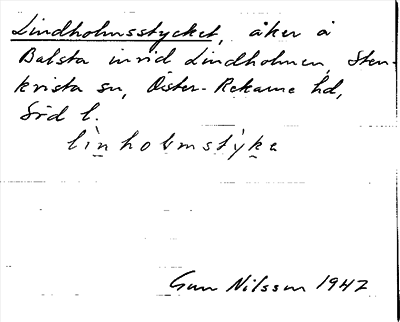 Lindholmsstycket, åker å
Balsta invid Lindholmen, Sten-
kvista sn, Öster-Rekarne hd,
Söd l.
linholmstyke
Gun Nilsson 1947